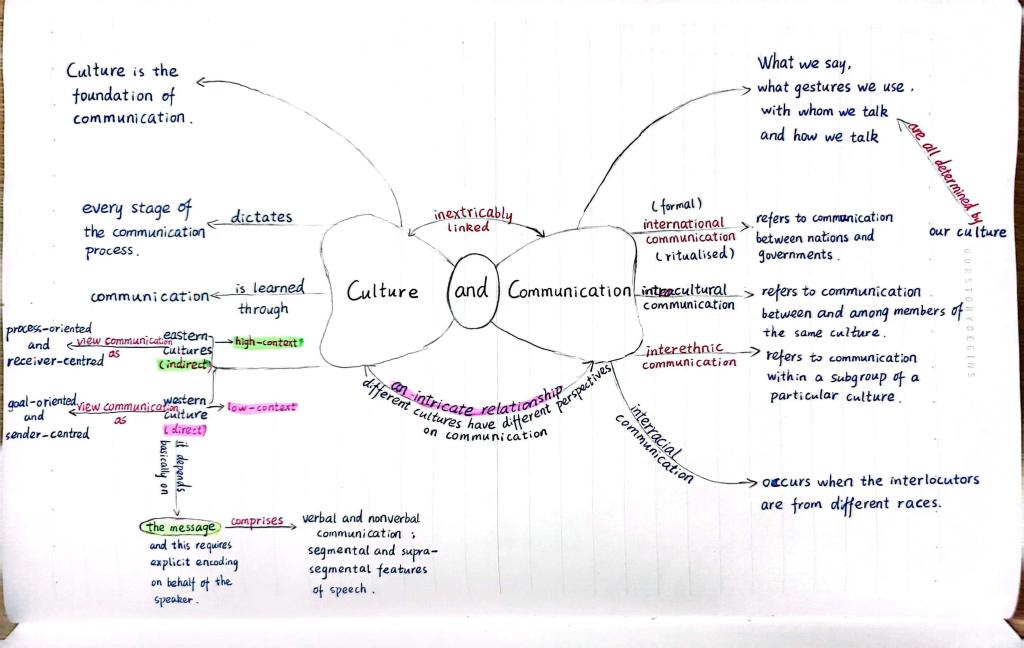 Culture is the
foundation of
communication.
What we say,
what gestures we use,
with whom we talk
and how we talk
are all determined by
our culture
every stage of
the communication
process.
dictates
inextricably
linked
(formal)
international
communication
(ritualised)
refers to communication
between nations and
governments.
communication
is learned
through
Culture
and
Communication
intracultural
communication
refers to communication
between and among members of
the same culture.
process-oriented
and
receiver-centred
view communication
as
eastern
cultures
(indirect)
high-context
interethnic
communication
refers to communication
within a subgroup of a
particular culture.
goal-oriented
and
sender-centred
view communication
as
western
culture
(direct)
low-context
an intricate relationship
different cultures have different perspectives
on communication
interracial
communication
occurs when the interlocutors
are from different races.
it depends
basically on
the message
and this requires
explicit encoding
on behalf of the
speaker.
comprises
verbal and nonverbal
communication ;
segmental and supra-
segmental features
of speech.
OURSTORYBEGINS